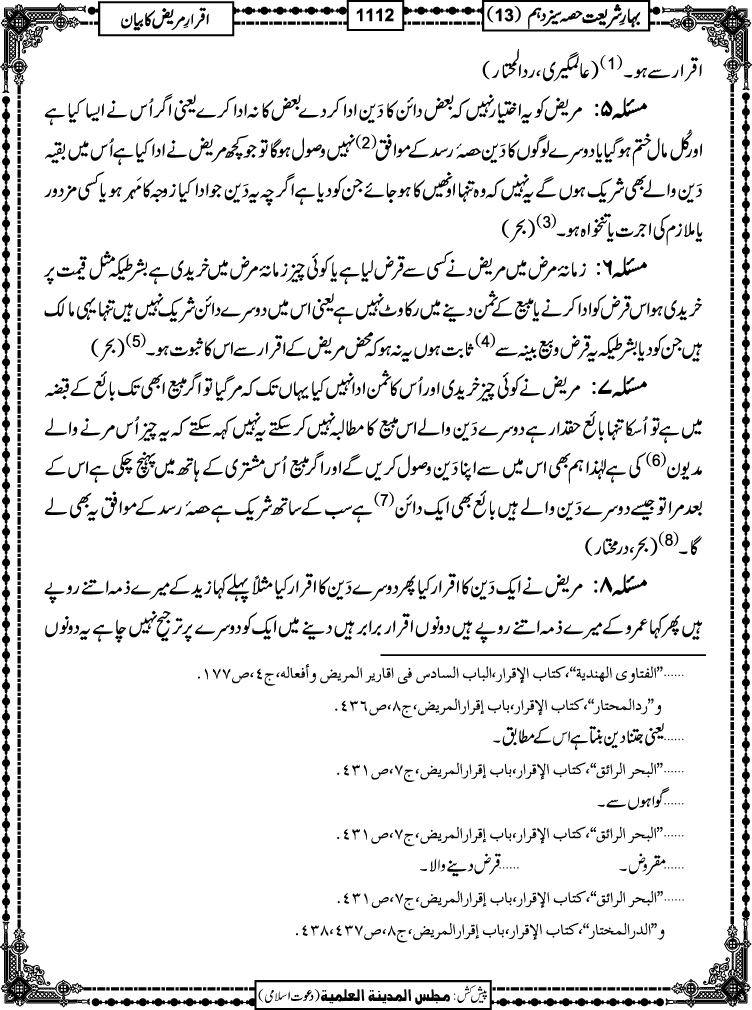 بہارِ شریعت حصہ سیزدہم (13)
1112
اقرارِ مریض کا بیان
اقرار سے ہو۔(1) (عالمگیری، ردالمحتار)
مسئلہ ۵: مریض کو یہ اختیار نہیں کہ بعض دائن کا دَین ادا کردے بعض کا نہ ادا کرے یعنی اگر اُس نے ایسا کیا ہے
اور کُل مال ختم ہوگیا یا دوسرے لوگوں کا دَین حصۂ رسد کے موافق(2) نہیں وصول ہوگا تو جو کچھ مریض نے ادا کیا ہے اُس میں بقیہ
دَین والے بھی شریک ہوں گے یہ نہیں کہ وہ تنہا اُنھیں کا ہو جائے جن کو دیا ہے اگرچہ یہ دَین جو ادا کیا زوجہ کا مَہر ہو یا کسی مزدور
یا ملازم کی اجرت یا تنخواہ ہو۔(3) (بحر)
مسئلہ ۶: زمانۂ مرض میں مریض نے کسی سے قرض لیا ہے یا کوئی چیز زمانۂ مرض میں خریدی ہے بشرطیکہ مثل قیمت پر
خریدی ہو اس قرض کو ادا کرنے یا مبیع کے ثمن دینے میں رکاوٹ نہیں ہے یعنی اس میں دوسرے دائن شریک نہیں ہیں تنہا یہی مالک
ہیں جن کو دیا بشرطیکہ یہ قرض و بیع بینہ سے(4) ثابت ہوں یہ نہ ہو کہ محض مریض کے اقرار سے اس کا ثبوت ہو۔(5) (بحر)
مسئلہ ۷: مریض نے کوئی چیز خریدی اور اُس کا ثمن ادا نہیں کیا یہاں تک کہ مر گیا تو اگر مبیع ابھی تک بائع کے قبضہ
میں ہے تو اُسکا تنہا بائع حقدار ہے دوسرے دَین والے اس مبیع کا مطالبہ نہیں کرسکتے یہ نہیں کہہ سکتے کہ یہ چیز اُس مرنے والے
مدیون(6) کی ہے لہٰذا ہم بھی اس میں سے اپنا دَین وصول کریں گے اور اگر مبیع اُس مشتری کے ہاتھ میں پہنچ چکی ہے اس کے
بعد مرا تو جیسے دوسرے دَین والے ہیں بائع بھی ایک دائن(7) ہے سب کے ساتھ شریک ہے حصۂ رسد کے موافق یہ بھی لے
گا۔(8) (بحر، درمختار)
مسئلہ ۸: مریض نے ایک دَین کا اقرار کیا پھر دوسرے دَین کا اقرار کیا مثلاً پہلے کہا زید کے میرے ذمہ اتنے روپے
ہیں پھر کہا عمرو کے میرے ذمہ اتنے روپے ہیں دونوں اقرار برابر ہیں دینے میں ایک کو دوسرے پر ترجیح نہیں چاہے یہ دونوں
......”الفتاوی الهندية“، کتاب الإقرار، الباب السادس فی اقاریر المریض وأفعاله، ج٤، ص١٧٧.
و”ردالمحتار“، کتاب الإقرار، باب إقرار المریض، ج٨، ص٤٣٦.
......یعنی جتنا دین بنتا ہے اس کے مطابق۔
......”البحر الرائق“، کتاب الإقرار، باب إقرار المریض، ج٧، ص٤٣١.
......گواہوں سے۔
......”البحر الرائق“، کتاب الإقرار، باب إقرار المریض، ج٧، ص٤٣١.
......مقروض۔ ......قرض دینے والا۔
......”البحر الرائق“، کتاب الإقرار، باب إقرار المریض، ج٧، ص٤٣١.
و”الدرالمختار“، کتاب الإقرار، باب إقرار المریض، ج٨، ص٤٣٧، ٤٣٨.
پیش کش: مجلس المدينة العلمية (دعوت اسلامی)